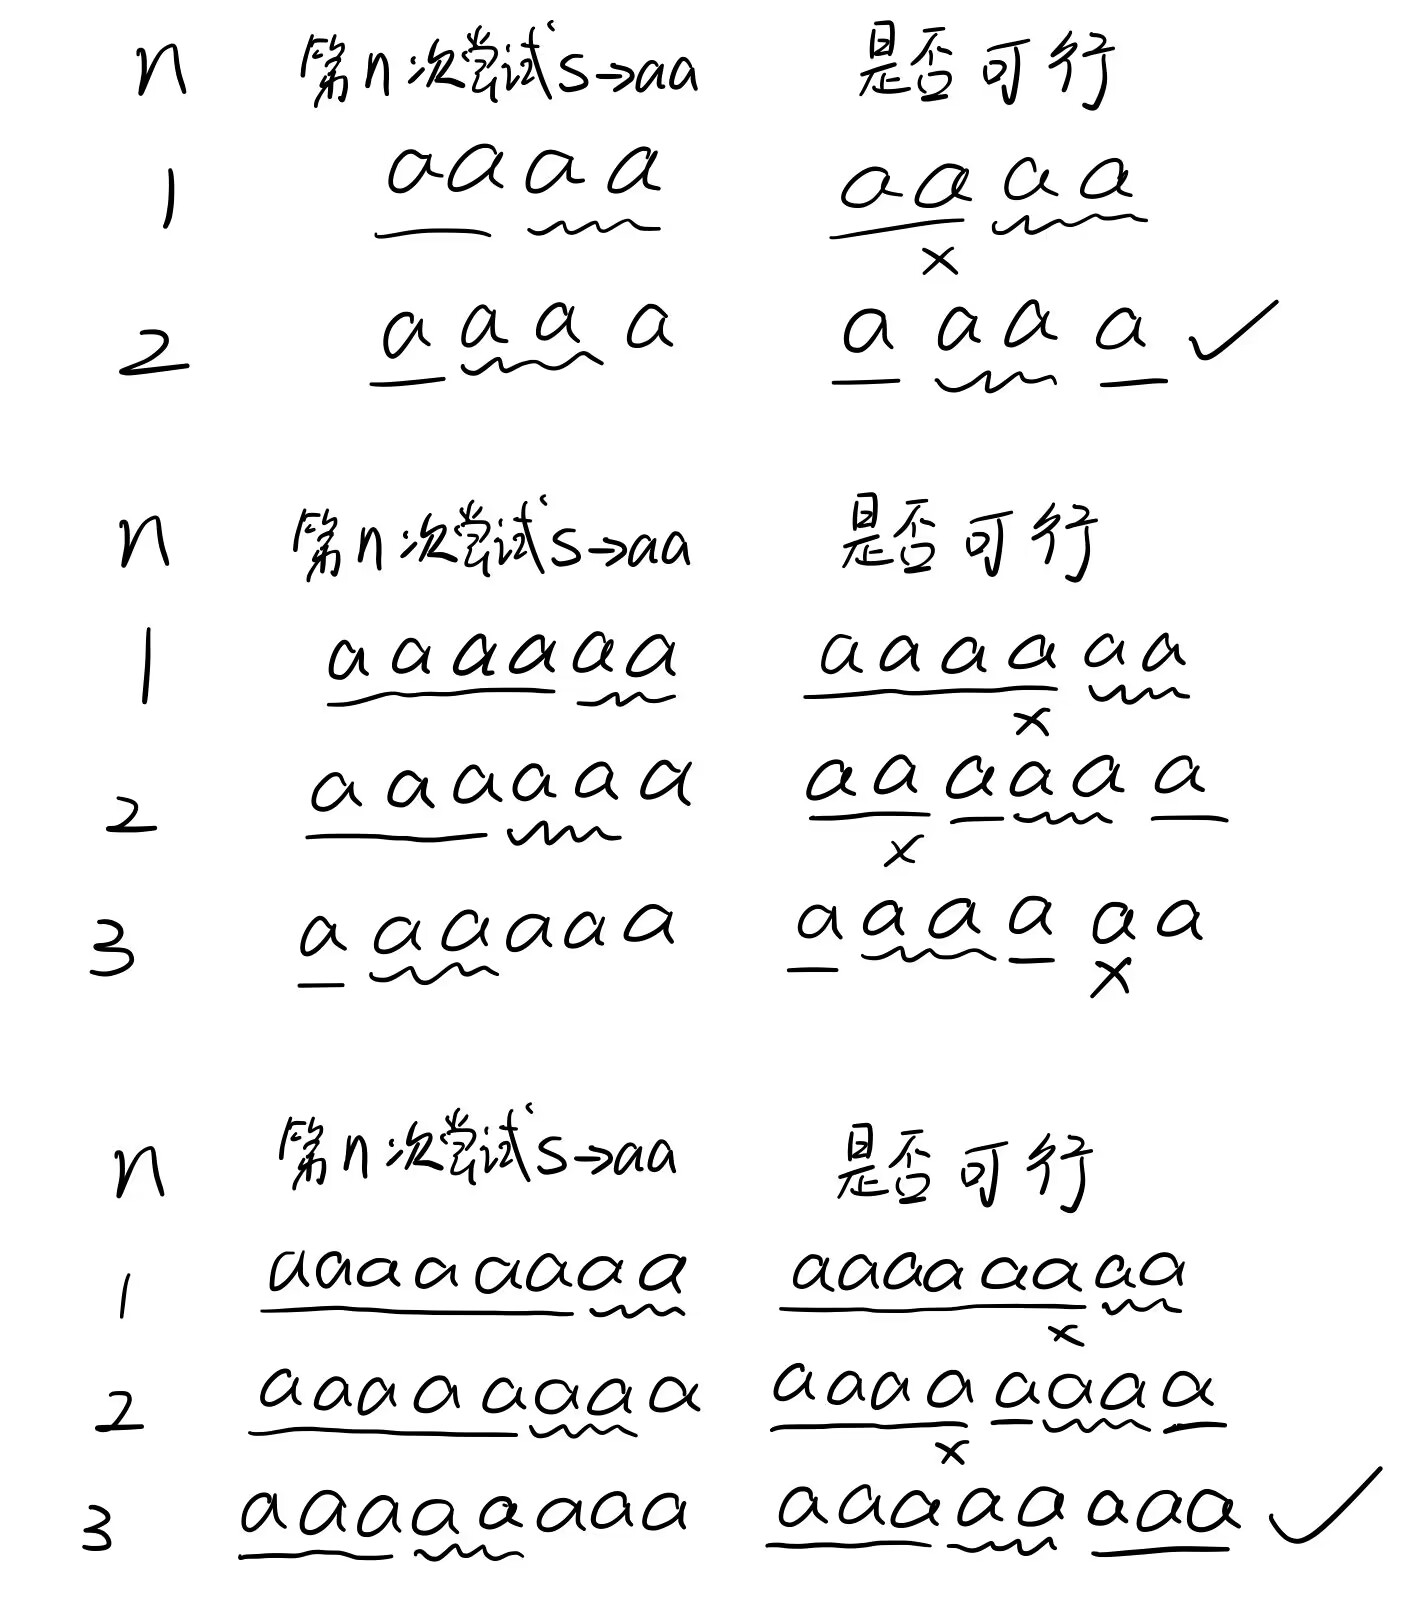 n 第n次尝试S→aa 是否可行
1 aaaa aaaa
×
2 aaaa aaaa ✓
n 第n次尝试S→aa 是否可行
1 aaaaaa aaaaaa
×
2 aaaaaa aaaaaa
×
3 aaaaaa aaaaaa
×
n 第n次尝试S→aa 是否可行
1 aaaaaaaa aaaaaaaa
×
2 aaaaaaaa aaaaaaaa
×
3 aaaaaaaa aaaaaaaa ✓